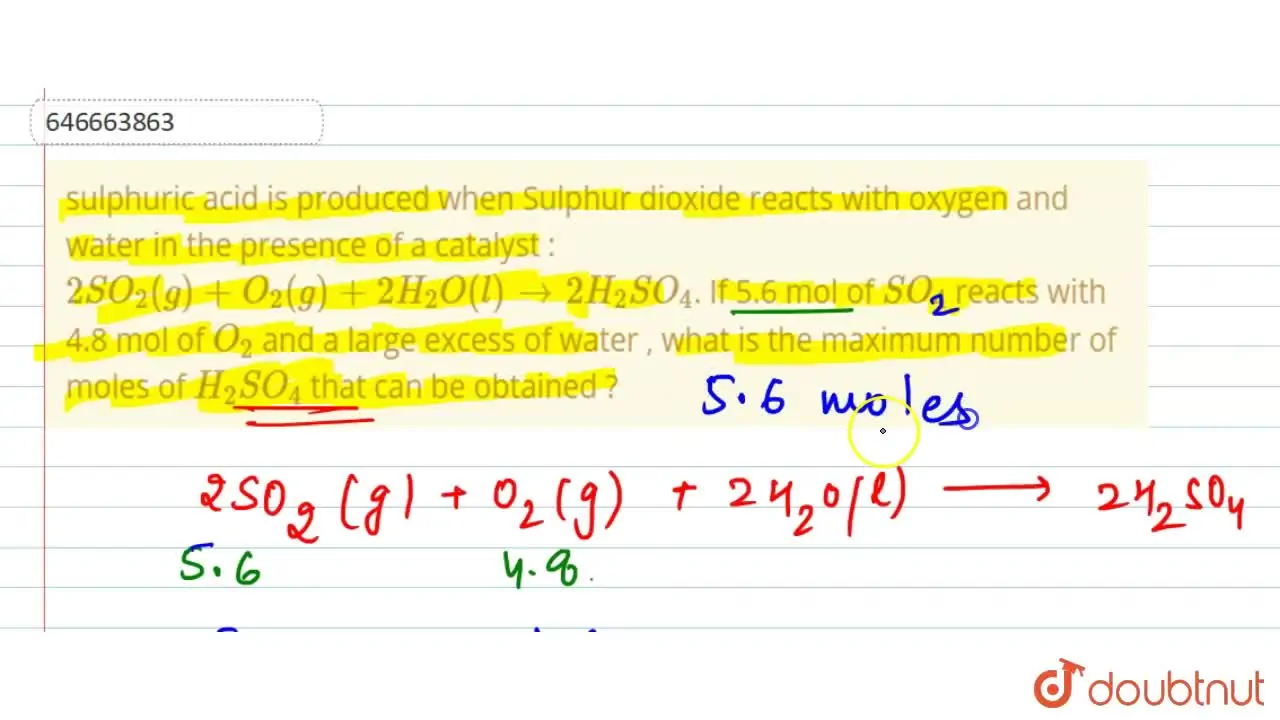 646663863
sulphuric acid is produced when Sulphur dioxide reacts with oxygen and
water in the presence of a catalyst :
2SO₂(g) + O₂(g) + 2H₂O(l) → 2H₂SO₄. If 5.6 mol of SO₂ reacts with
4.8 mol of O₂ and a large excess of water , what is the maximum number of
moles of H₂SO₄ that can be obtained ?
5.6 moles
2SO₂ (g) + O₂ (g) + 2H₂O(l) → 2H₂SO₄
5.6 4.8
doubtnut